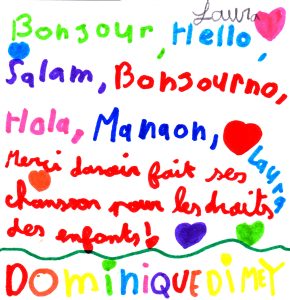 Laura
Bonjour, Hello,
Salam, Bonsourno,
Hola, Manaon,
Laura
Merci davoir fait ses
chanson pour les droits
des enfants!
DOMINIQUE DIMEY